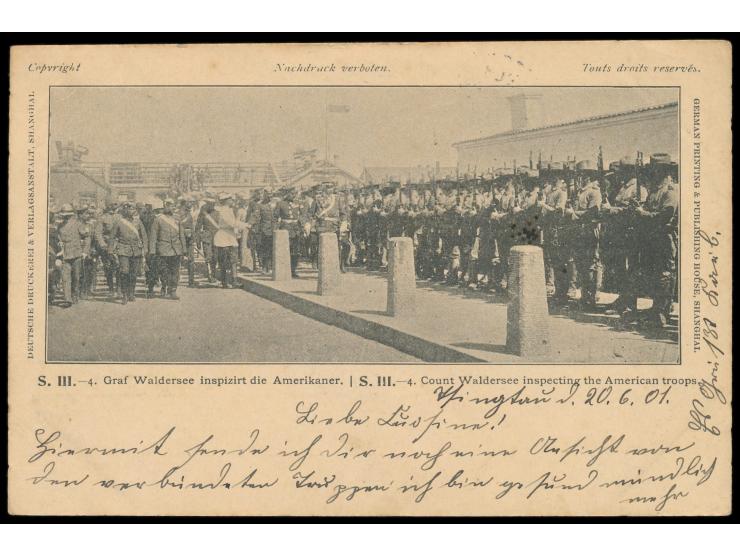 Copyright Nachdruck verboten. Touts droits reservés.
DEUTSCHE DRUCKEREI & VERLAGSANSTALT, SHANGHAI
GERMAN PRINTING & PUBLISHING HOUSE, SHANGHAI
S. III.—4. Graf Waldersee inspizirt die Amerikaner. | S. III.—4. Count Waldersee inspecting the American troops.
Tsingtau d. 20.6.01.
Liebe Cuosine!
Hiermit sende ich dir noch eine Ansicht von
den verbündeten Truppen ich bin gesund mündlich
mehr